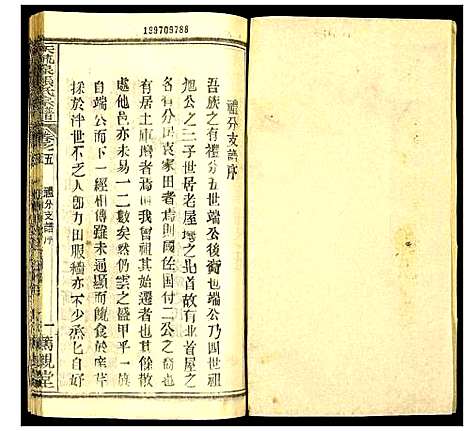 199709788
禮分支譜序
吾族之有禮分五世端公後裔也端公乃四世祖
旭公之三子世居老屋塆之北首故有北首屋之
分又有分回袁家田者焉則國侄國付二公之裔
有居土庫塆者焉則我曾祖其始遷者也其餘散
處他邑亦未易一二數矣然仍雲之盛甲乎一族
自端公而下一經相傳雖未通顯而饩食於庠
採於泮世不乏人即力田服穡亦不少烝乜自好
張氏宗譜
卷之五
禮分支譜序
一
親堂